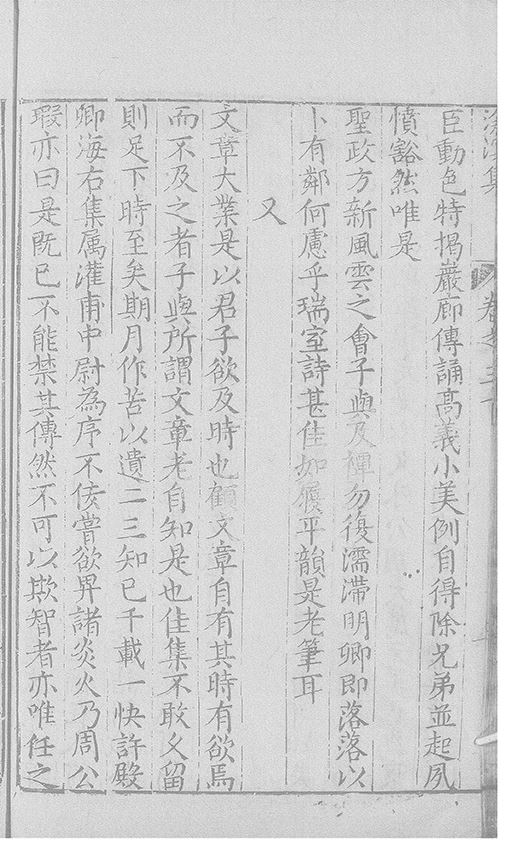 臣動色特揭巖廊傳誦高義小美例自得除兄弟並起夙
憤豁然唯是
聖政方新風雲之會子與及禪勿復濡滯明卿即落落以
卜有鄰何慮乎瑞室詩甚佳如履平韻是老筆耳
又
文章大業是以君子欲及時也顧文章自有其時有欲焉
而不及之者子與所謂文章老自知是也佳集不敢久留
則足下時至矣期月作苦以遺二三知已千載一快許殿
卿海右集属灌甫中尉為序不佞嘗欲畀諸炎火乃周公
瑕亦曰是既已不能禁其傳然不可以欺智者亦唯任之